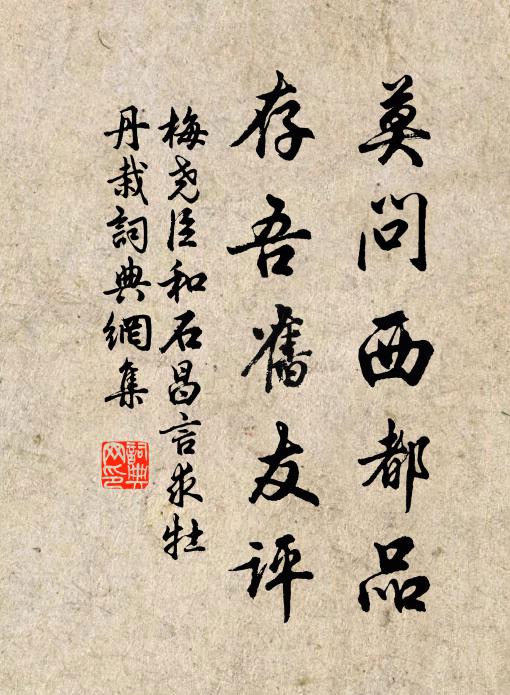 莫问西都品
存吾舊友评
梅尧臣和石昌言求牡
丹栽詞典網集
詞典
网印